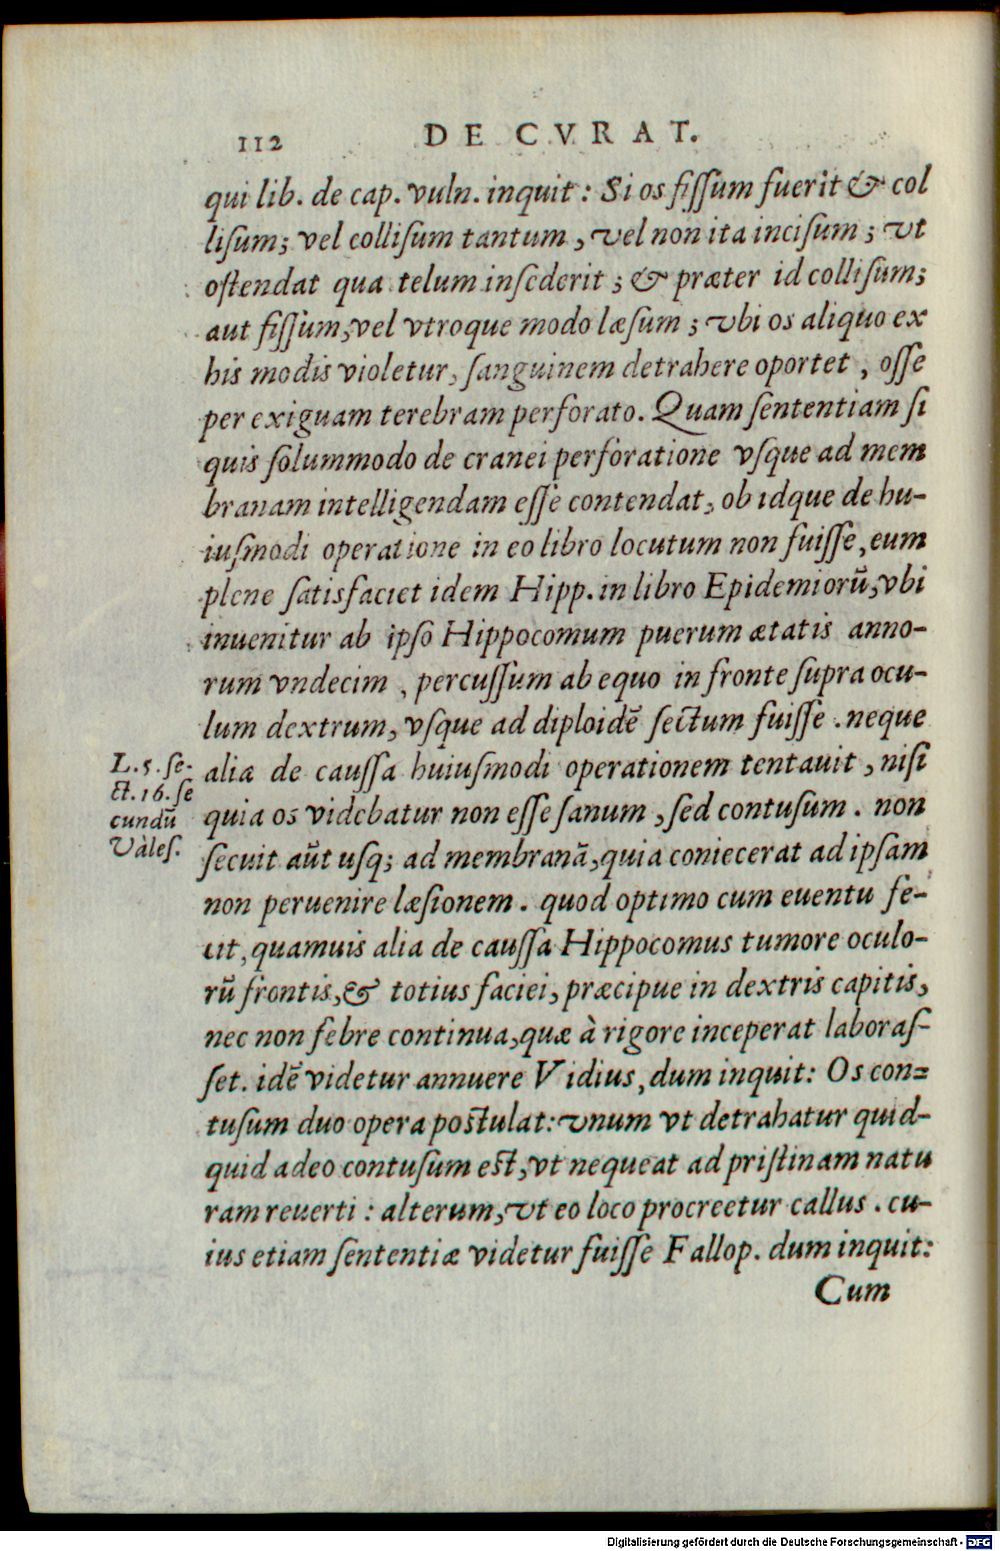 112
DE CVRAT.
qui lib. de cap. vuln. inquit: Si os fiſſum fuerit & col
liſum; vel colliſum tantum, vel non ita inciſum; vt
oſtendat qua telum inſederit; & præter id colliſum;
aut fiſſum, vel vtroque modo læſum; vbi os aliquo ex
his modis violetur, ſanguinem detrahere oportet, oſſe
per exiguam terebram perforato. Quam ſententiam ſi
quis ſolummodo de cranei perforatione vſque ad mem
branam intelligendam eſſe contendat, ob idque de hu-
iuſmodi operatione in eo libro locutum non fuiſſe, eum
plene ſatisfaciet idem Hipp. in libro Epidemiorū, vbi
inuenitur ab ipſo Hippocomum puerum ætatis anno-
rum vndecim, percuſſum ab equo in fronte ſupra ocu-
lum dextrum, vſque ad diploidē ſectum fuiſſe. neque
alia de cauſſa huiuſmodi operationem tentauit, niſi
quia os videbatur non eſſe ſanum, ſed contuſum. non
ſecuit aūt uſq; ad membranā, quia coniecerat ad ipſam
non peruenire læſionem. quod optimo cum euentu fe-
cit, quamuis alia de cauſſa Hippocomus tumore oculo-
rū frontis, & totius faciei, præcipue in dextris capitis,
nec non febre continua, quæ à rigore inceperat laboraſ-
ſet. idē videtur annuere Vidius, dum inquit: Os con-
tuſum duo opera poſtulat: vnum vt detrahatur quid-
quid adeo contuſum eſt, vt nequeat ad priſtinam natu
ram reuerti: alterum, vt eo loco procreetur callus. cu-
ius etiam ſententiæ videtur fuiſſe Fallop. dum inquit:
Cum
L. 5. ſe-
ct. 16. ſe
cundū
Valeſ.
Digitalisierung gefördert durch die Deutsche Forschungsgemeinschaft - DFG